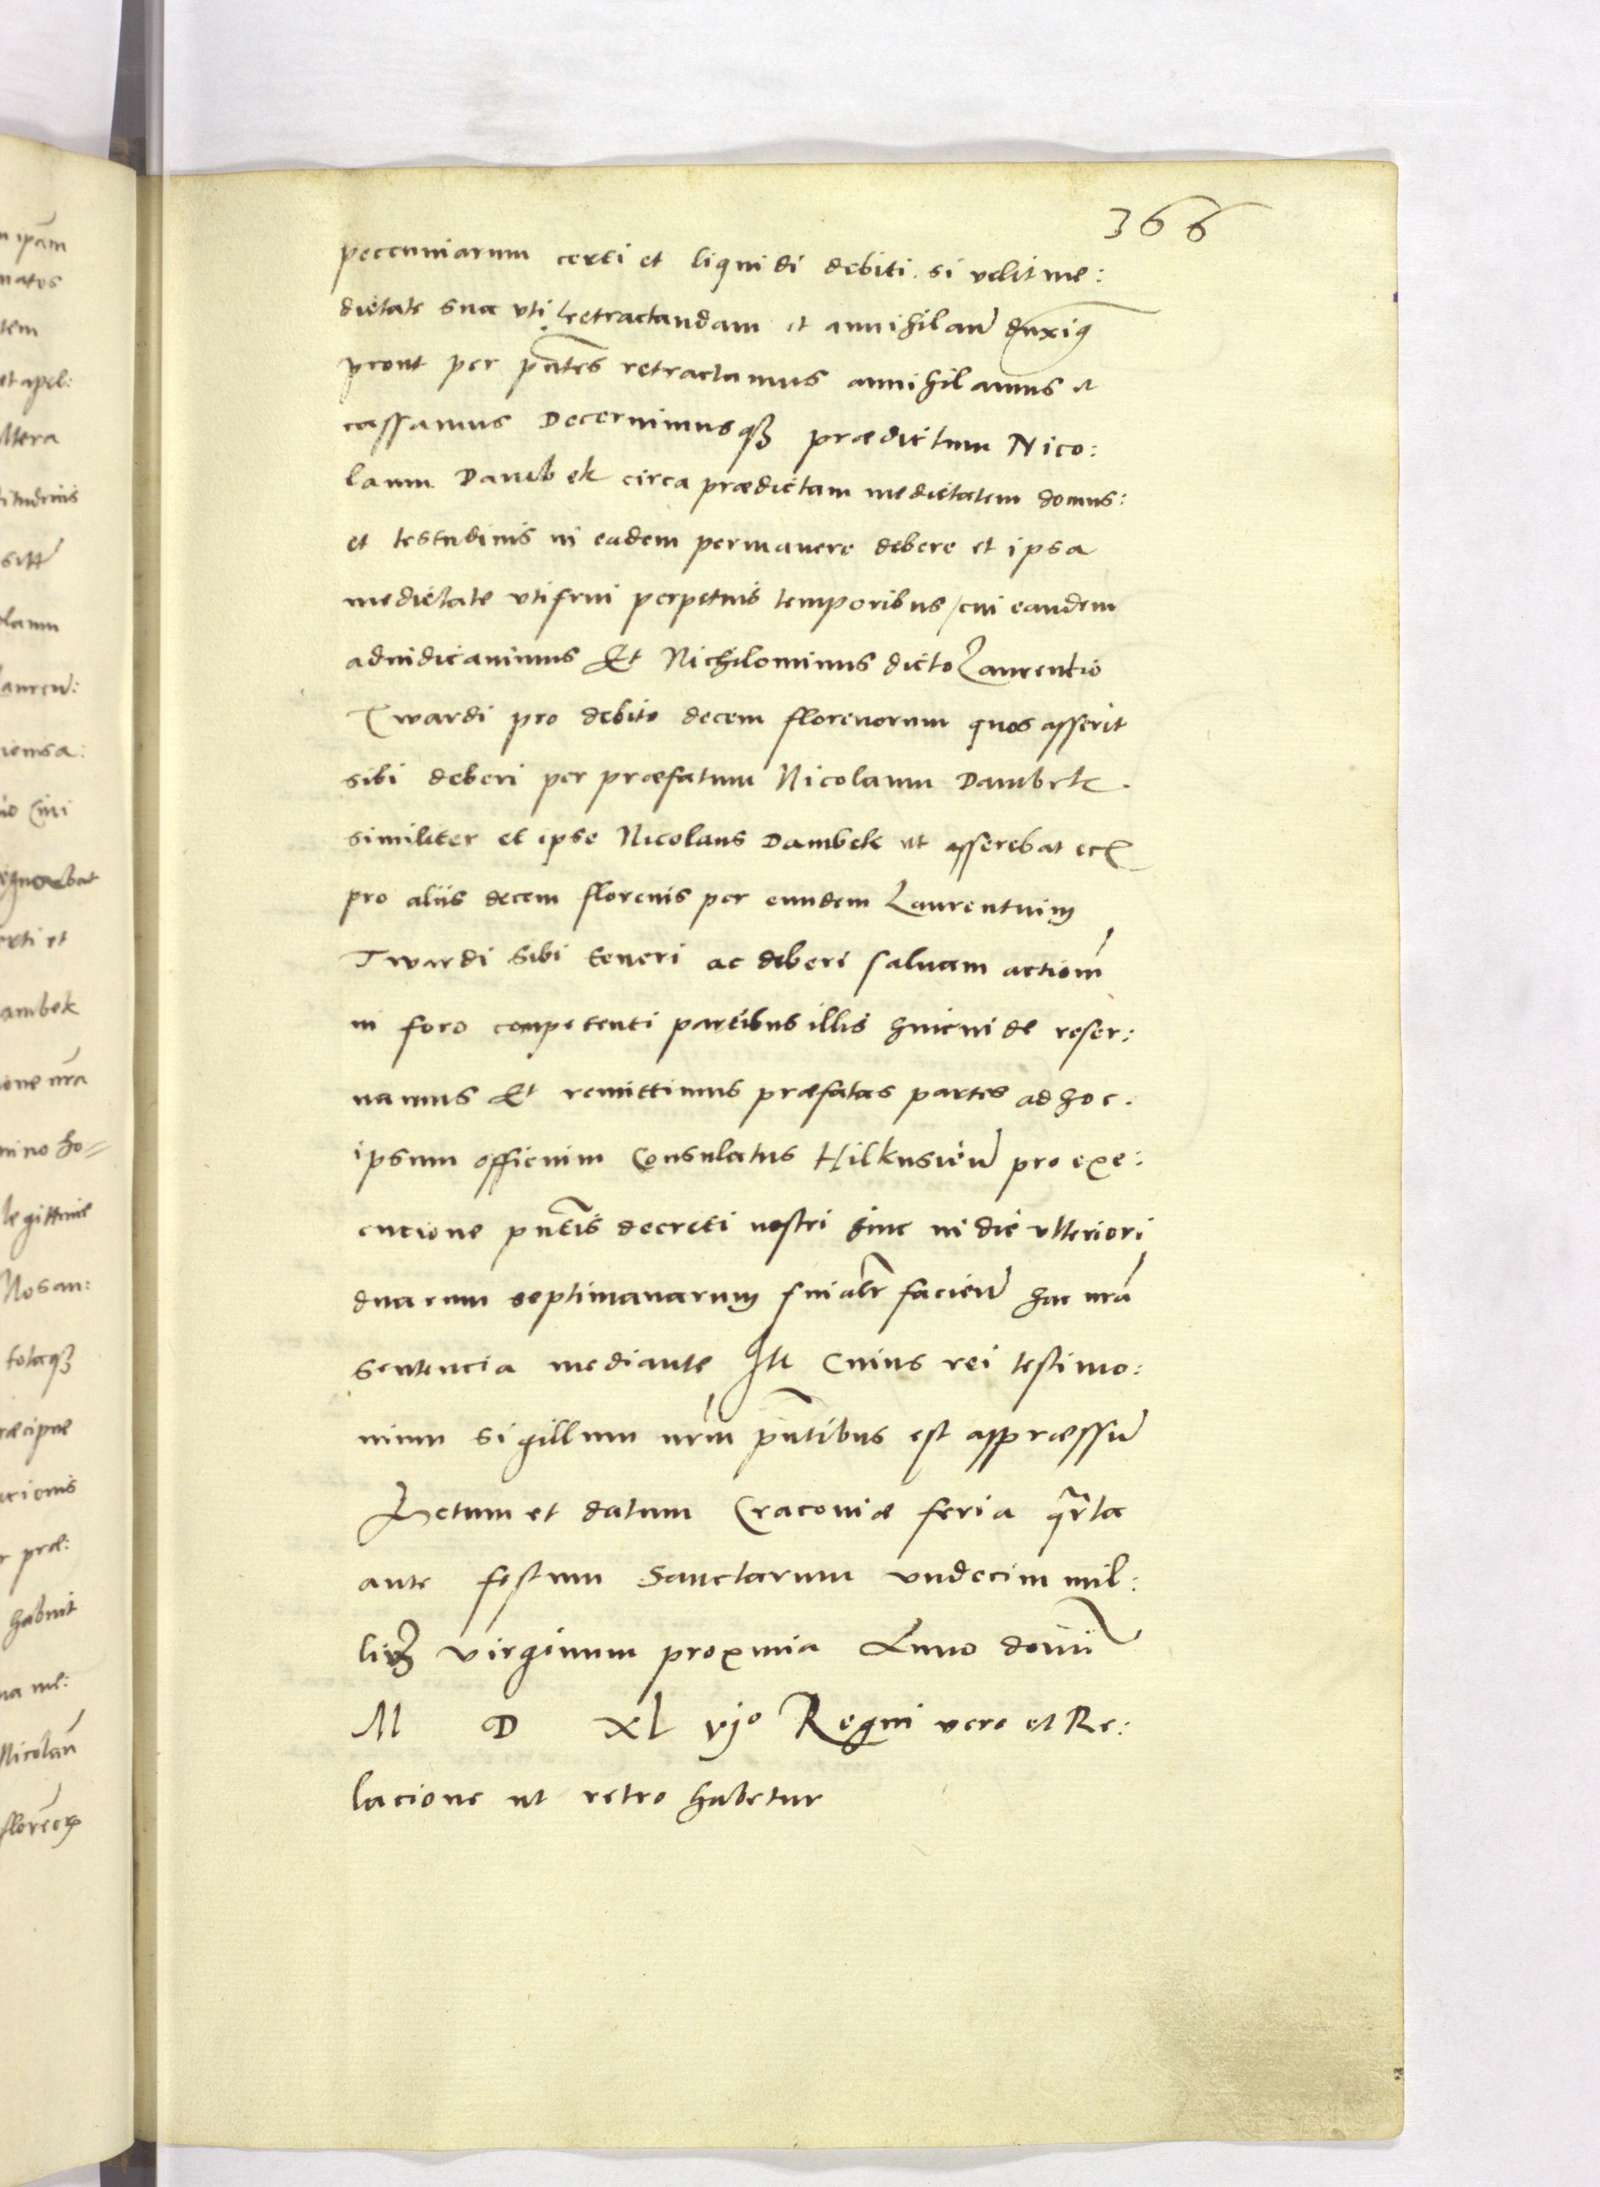 366
peccuniarum certi et liquidi debiti. si velit me:
dietate sua vti retractandam et annihilanđ duximꝯ
prout per pn̄tes retractamus annihilamus et
cassamus Decernimusqꝫ prædictum Nico:
laum Dambek circa prædictam medietatem domus:
et testudinis in eadem permanere debere et ipsa
medietate vtifrui perpetuis temporibus / cui eandem
adiudicauimus Et Nichilominus dicto Laurentio
Twardi pro debito decem florenorum quos asserit
sibi deberi per præfatum Nicolaum Dambek.
similiter et ipse Nicolaus Dambek ut asserebat
pro aliis decem florenis per eundem Laurentium
Twardi sibi teneri ac deberi saluam actionem̄
in foro competenti partibus illis hincinde reser:
uamus Et remittimus præfatas partes ad hoc.
ipsum officium Consulatus Hilkusień pro exe:
cucione pn̄tis decreti nostri hinc in die vlteriori
duarum septimanarum fiń facień hac nr̄a
sentencia mediante In Cuius rei testimo:
nium sigillum nr̄m pn̄tibus est appræssū
Actum et datum Cracouiæ feria qꝛta
ante festum Sanctarum vndecim mil:
liū virginum proxima Anno domī
M D XL vjo Regni vero et Re:
lacione ut retro habetur
n ip̄am
nates
tem
et apel:
ltera
laum
ambek
one nr̄a
mino ho=
legittime
Nos an:
totaqꝫ
ræcipue
r præ:
habuit
na me:
Nicolaū